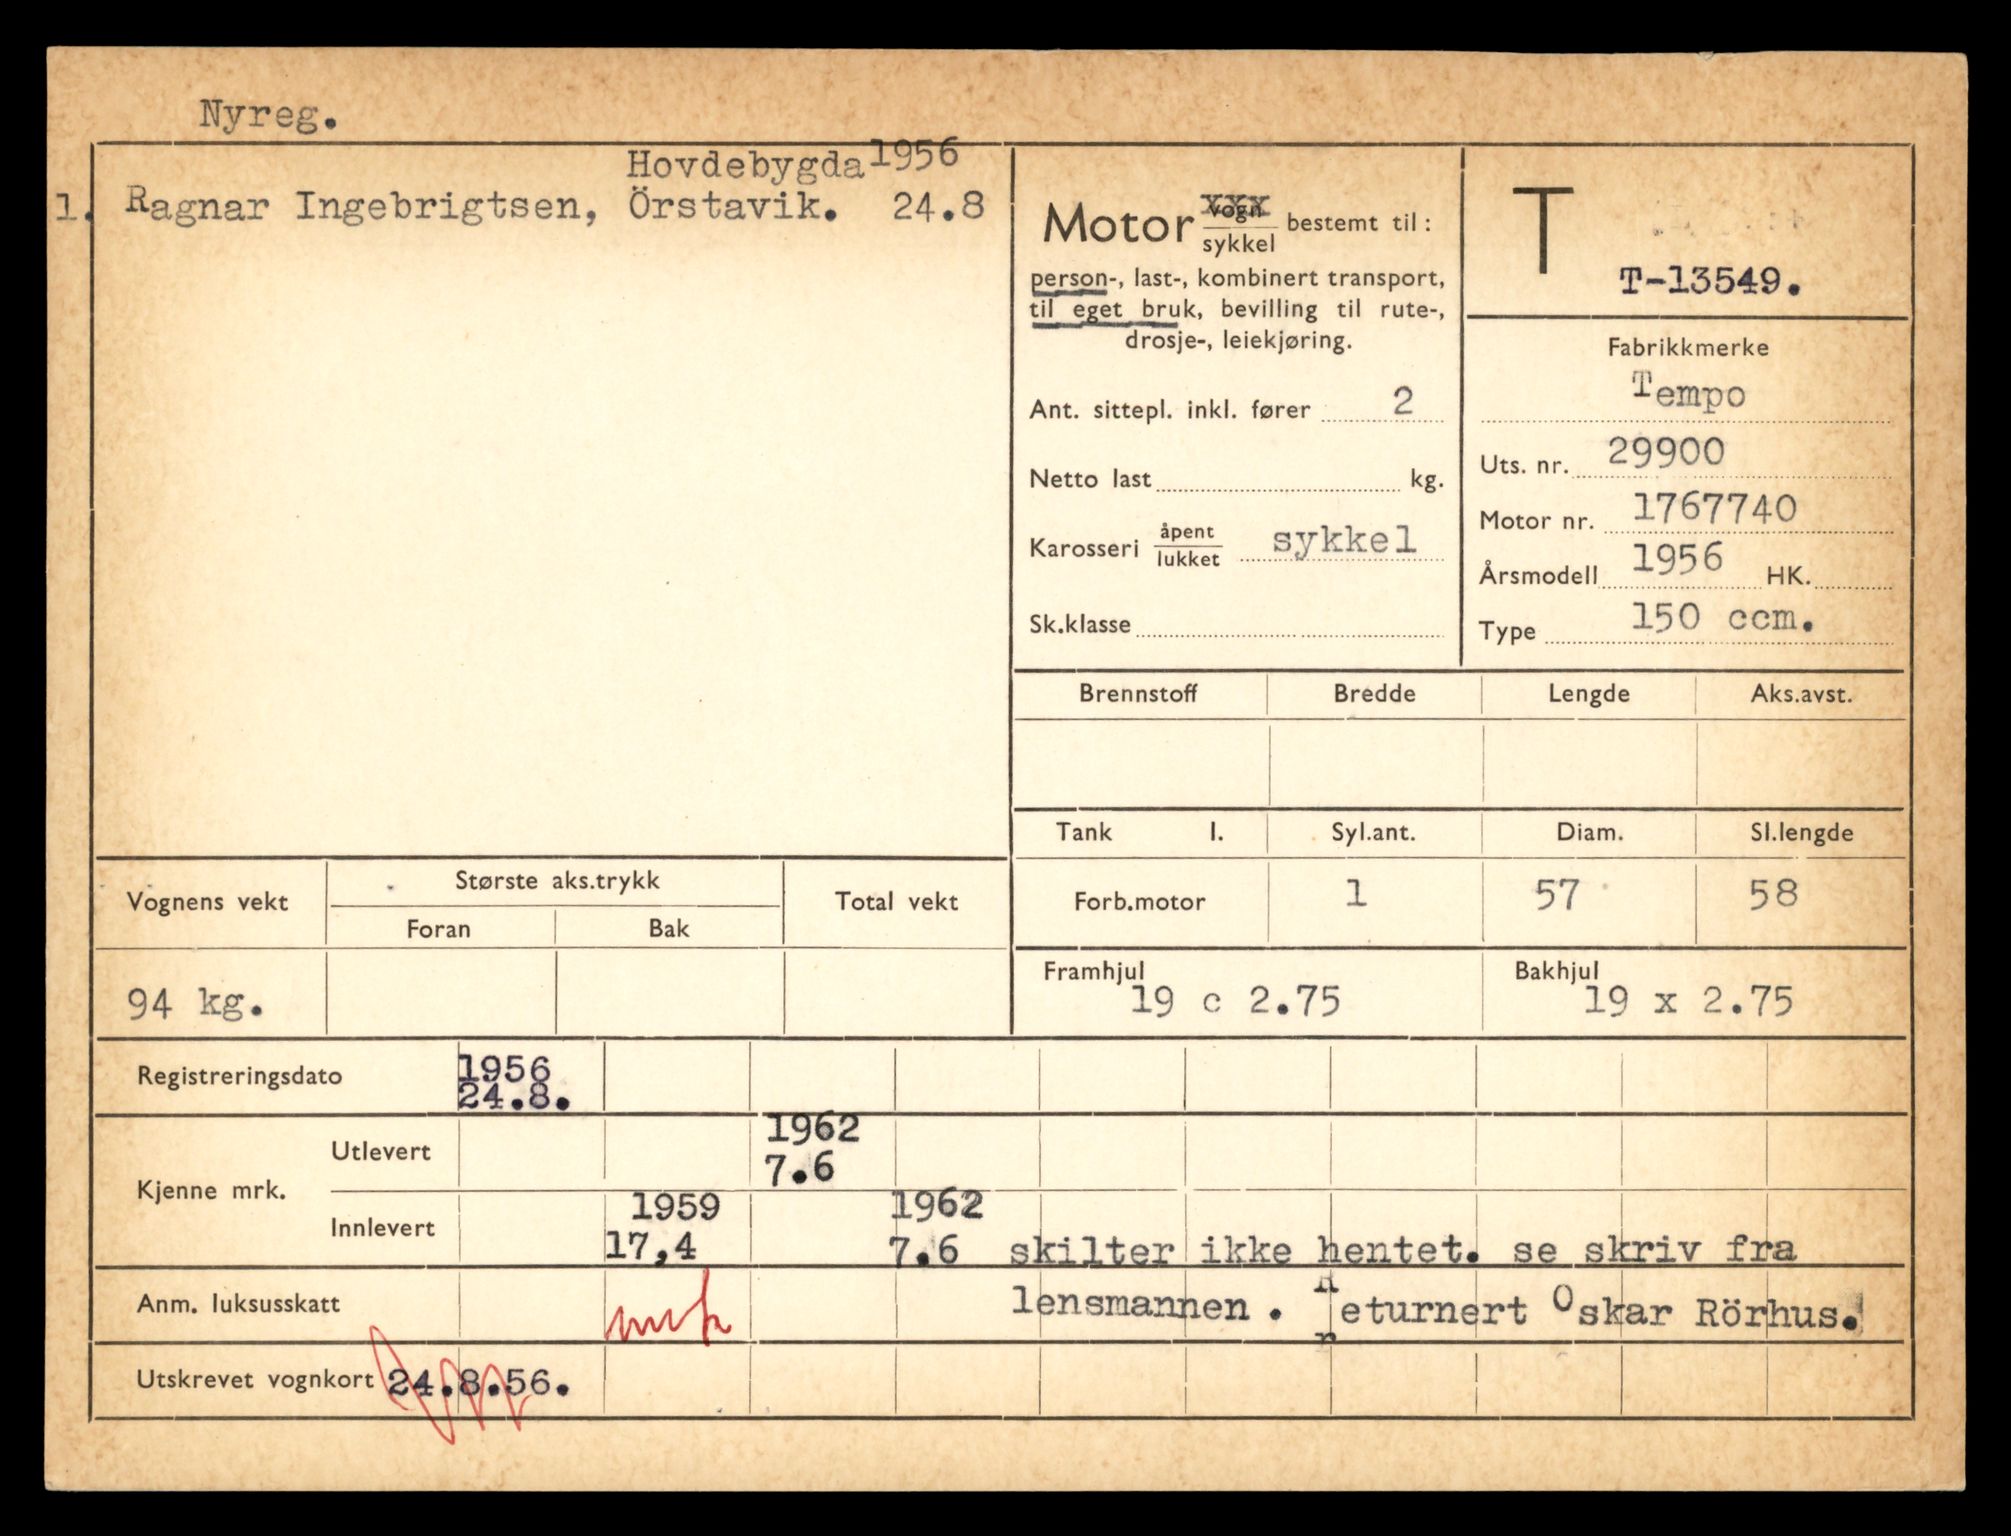 Nyreg.
Hovdebygda 1956
1. Ragnar Ingebrigtsen, Örstavik. 24.8
Motor vogn / sykkel bestemt til :
person-, last-, kombinert transport,
til eget bruk, bevilling til rute-,
drosje-, leiekjøring.
Ant. sittepl. inkl. fører 2
Netto last kg.
Karosseri åpent / lukket sykkel
Sk.klasse
T
T-13549.
Fabrikkmerke
Tempo
Uts. nr. 29900
Motor nr. 1767740
Årsmodell 1956 HK.
Type 150 ccm.
Brennstoff Bredde Lengde Aks.avst.
Tank l. Syl.ant. Diam. Sl.lengde
Forb.motor 1 57 58
Framhjul Bakhjul
19 c 2.75 19 x 2.75
Vognens vekt Største aks.trykk Total vekt
Foran Bak
94 kg.
Registreringsdato 1956
24.8.
Kjenne mrk. Utlevert 1962
7.6
Innlevert 1959 1962
17,4 7.6 skilter ikke hentet. se skriv fra
Anm. luksusskatt lensmannen . Returnert Oskar Rörhus.
Utskrevet vognkort 24.8.56.